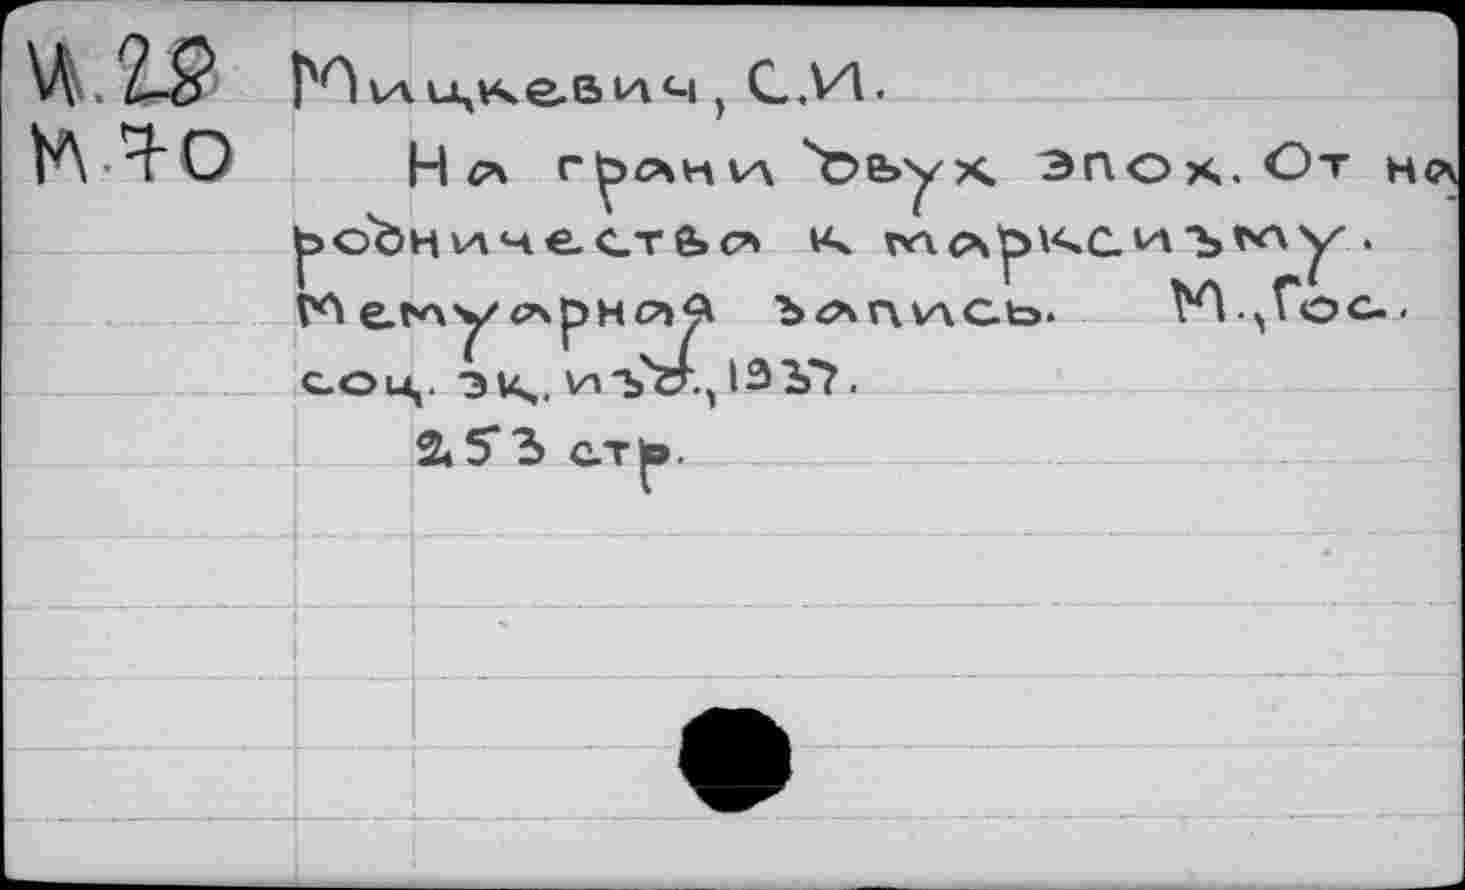 И.28 Мицкевич, С.И.
М 70 На грани двух эпох. От на
родничества к марксизму.
Мемуарная запись. М., Гос.
соц. эк. изд., 1937.
253 стр.